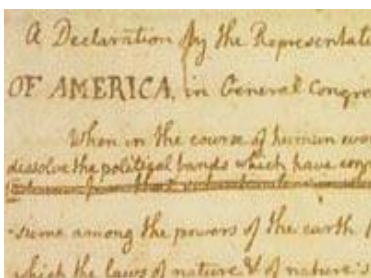 A Declaration by the Representati
OF AMERICA, in General Congre
When in the course of human even
dissolve the political bands which have con
-sume among the powers of the earth
which the laws of nature & of nature's